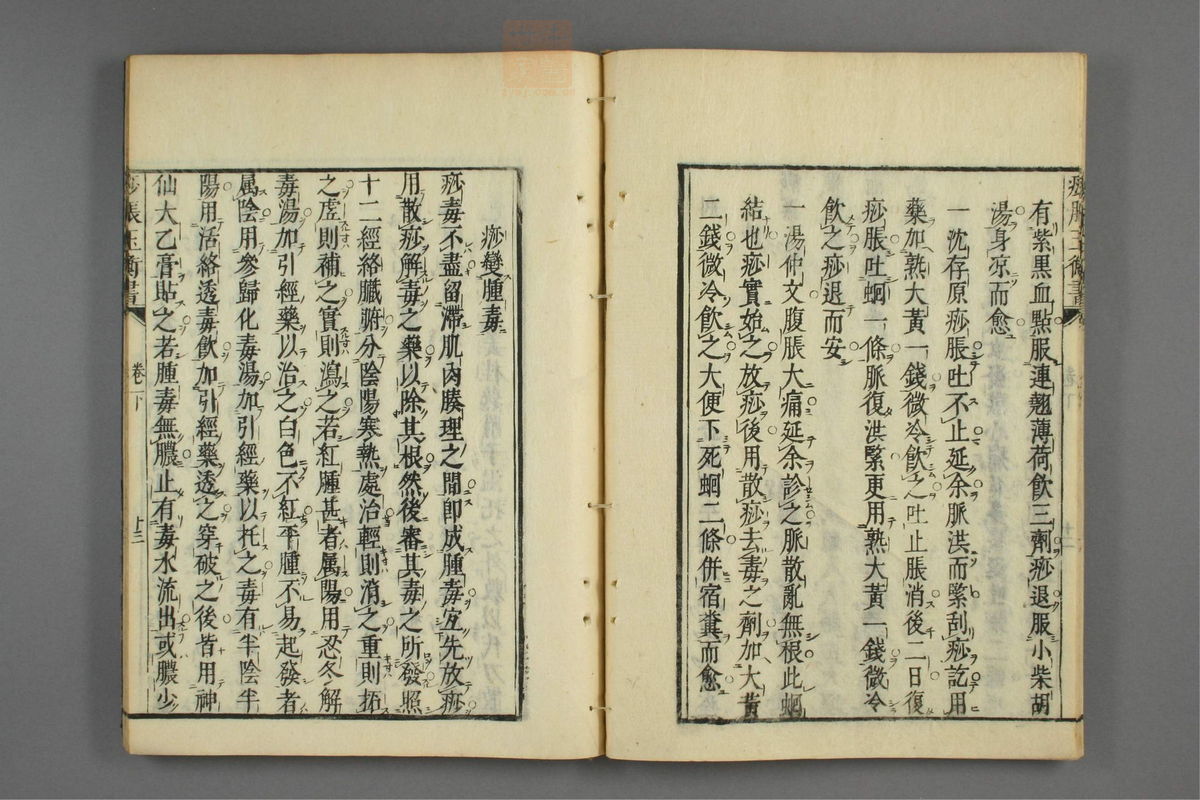 痧脹玉衡書
有紫黒血㸃服連翹薄荷飲三劑痧退服小柴胡
湯身凉而愈
一沈存原痧脹吐不止延余脈洪而緊刮痧訖用
藥加熟大黃一錢微冷飲之吐止脹消後二日復
痧脹吐蛔一條脈復洪緊更用熟大黃一錢微冷
飲之痧退而安
一湯仲文腹脹大痛延余診之脈散亂無根此蛔
結也痧實始之放痧後用散痧去毒之劑加大黃
二錢微冷飲之大便下死蛔二條併宿糞而愈
痧變腫毒
痧毒不盡留滯肌肉腠理之間卽成腫毒宜先放痧
用散痧解毒之藥以除其根然後審其毒之所發照
十二經絡臟腑分陰陽寒熱處治輕則消之重則拓
之虛則補之實則瀉之若紅腫甚者属陽用忍冬解
毒湯加引經藥以治之白色不紅平腫不易起發者
属陰用參歸化毒湯加引經藥以托之毒有半陰半
陽用活絡透毒飲加引經藥透之穿破之後皆用神
仙大乙膏貼之若腫毒無膿止有毒水流出或膿少
痧脹玉衡書
卷下
廿三